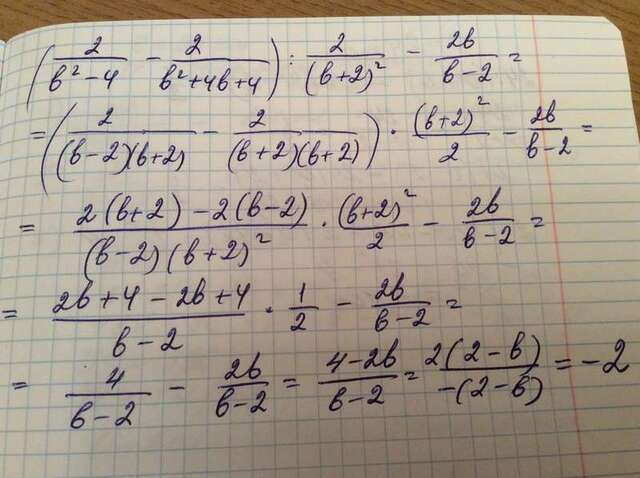 (2/(b²-4) - 2/(b²+4b+4)) : 2/(b+2)² - 2b/(b-2) =
= (2/((b-2)(b+2)) - 2/((b+2)(b+2))) · (b+2)²/2 - 2b/(b-2) =
= (2(b+2)-2(b-2))/((b-2)(b+2)²) · (b+2)²/2 - 2b/(b-2) =
= (2b+4-2b+4)/(b-2) · 1/2 - 2b/(b-2) =
= 4/(b-2) - 2b/(b-2) = (4-2b)/(b-2) = 2(2-b)/(-(2-b)) = -2